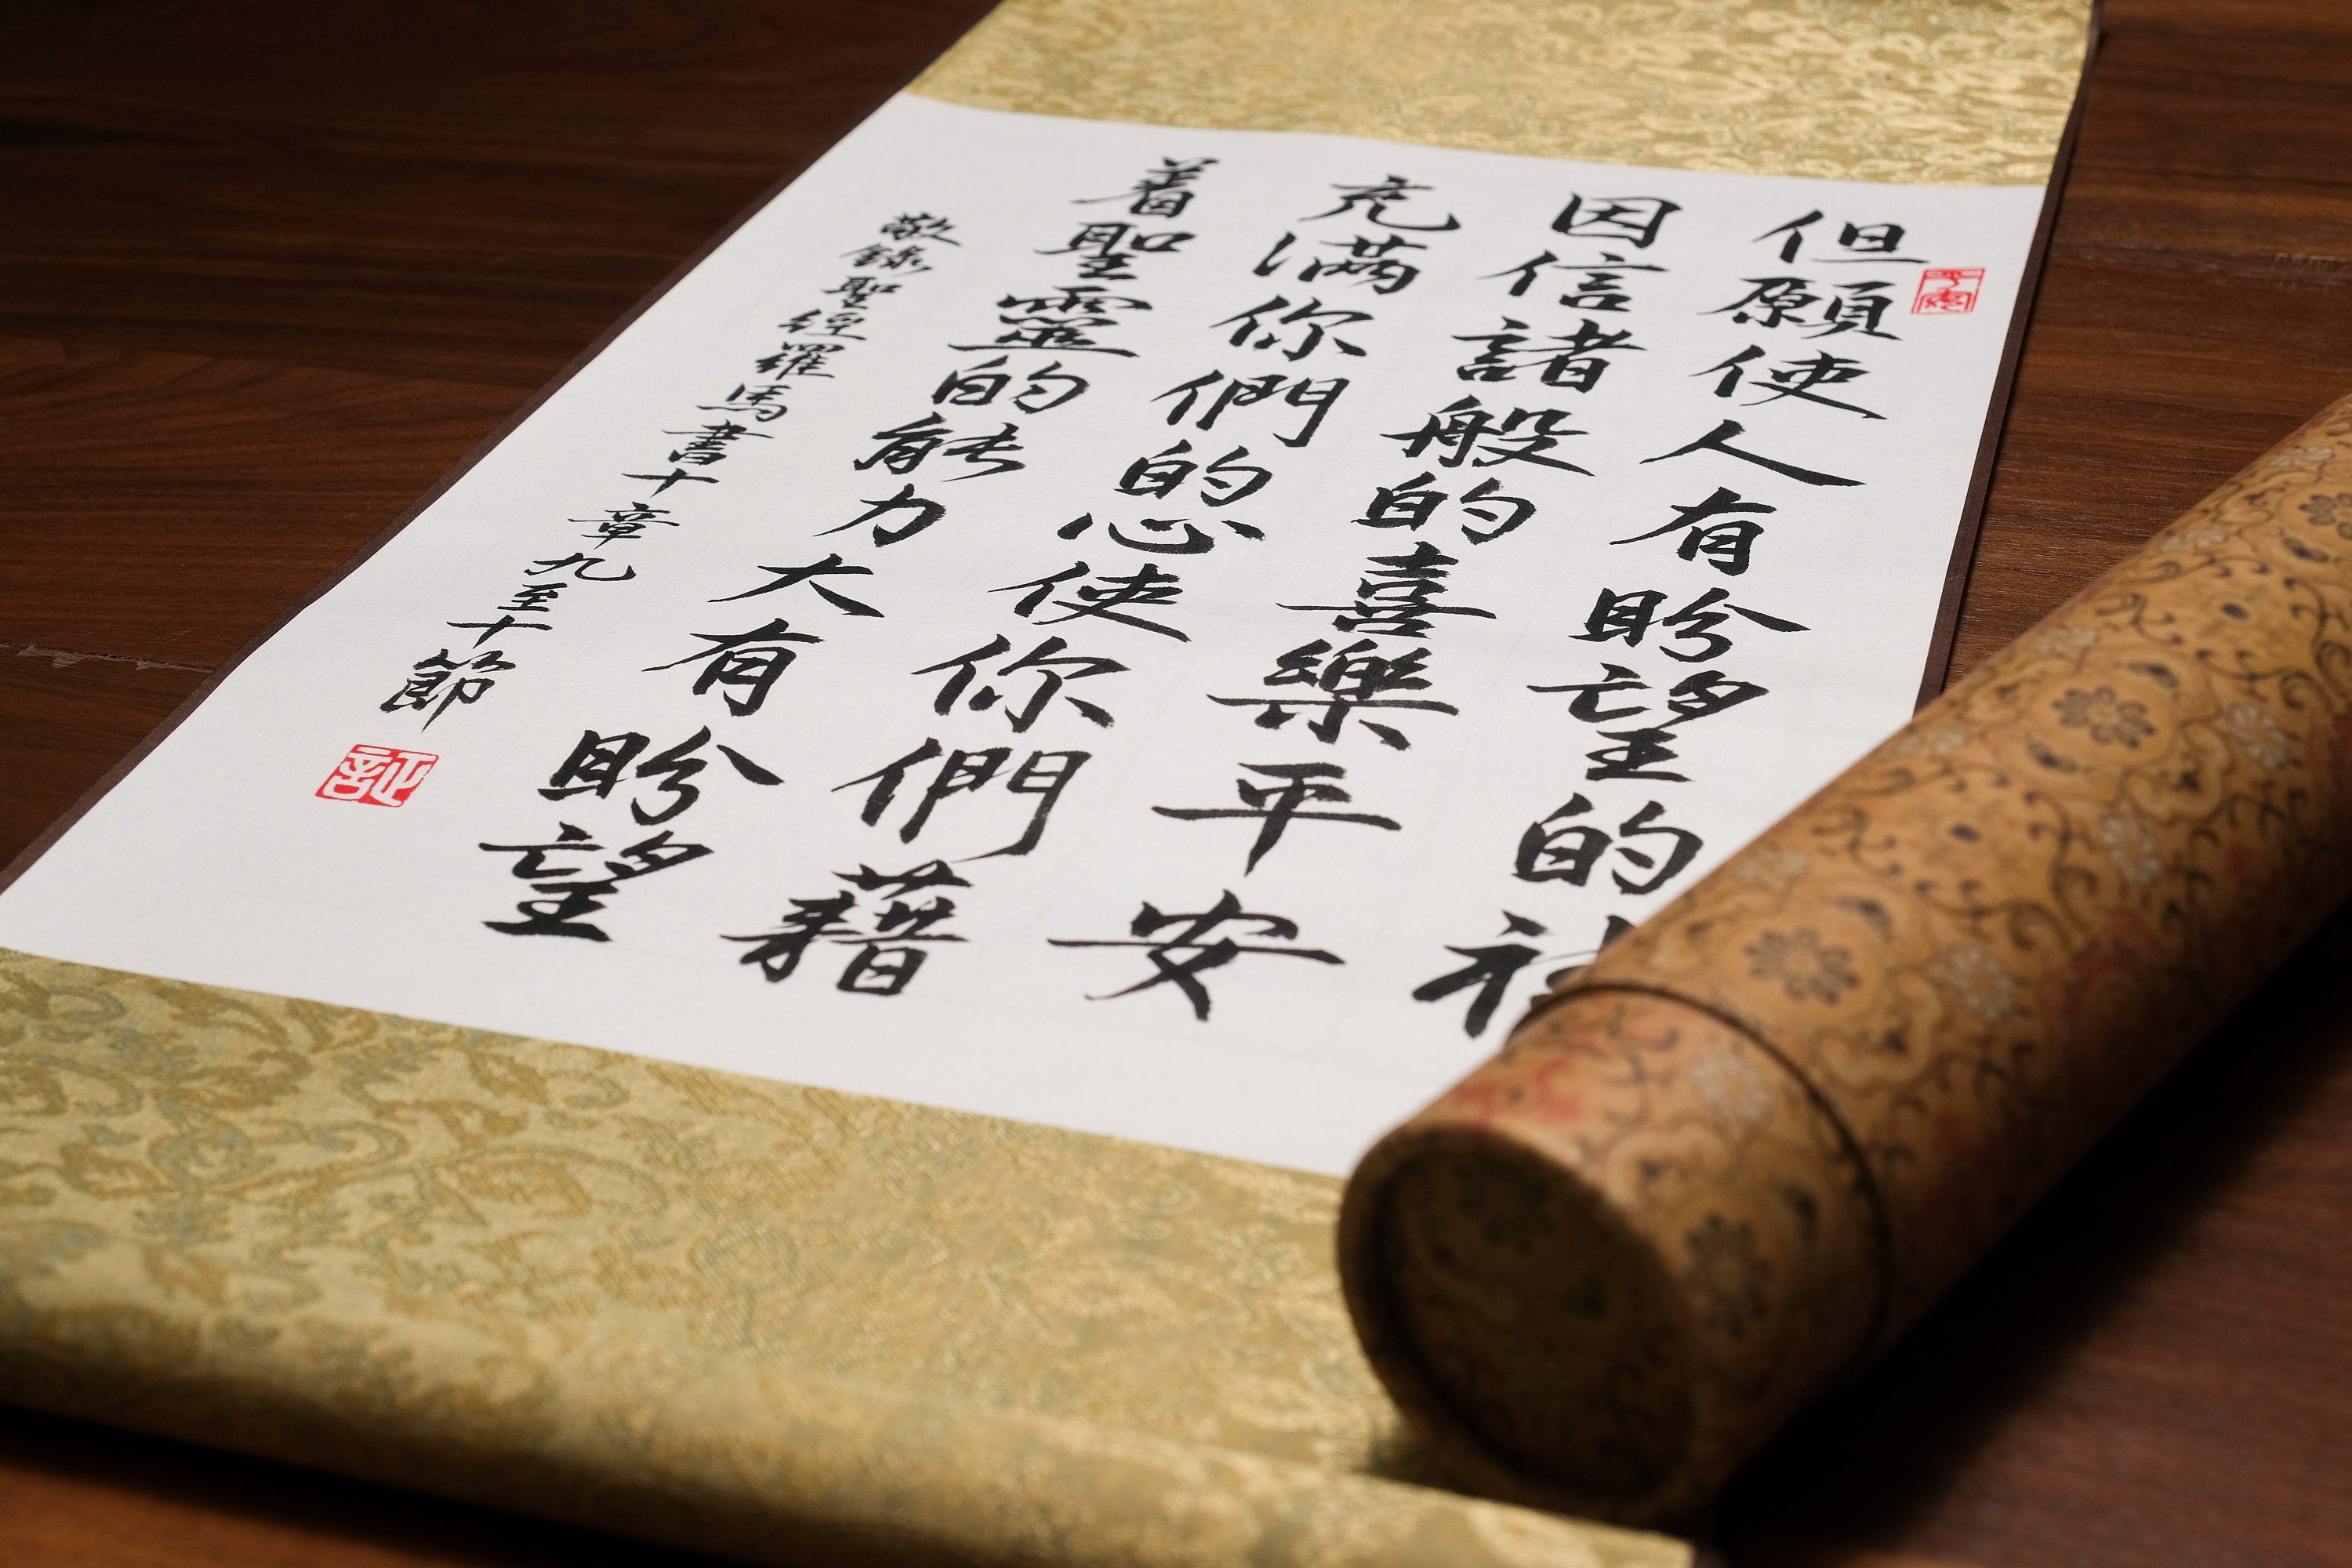 但願使人有盼望的
因信諸般的喜樂平安
充滿你們的心使你們藉
着聖靈的能力大有盼望
敬錄聖經羅馬書十章九至十節
証